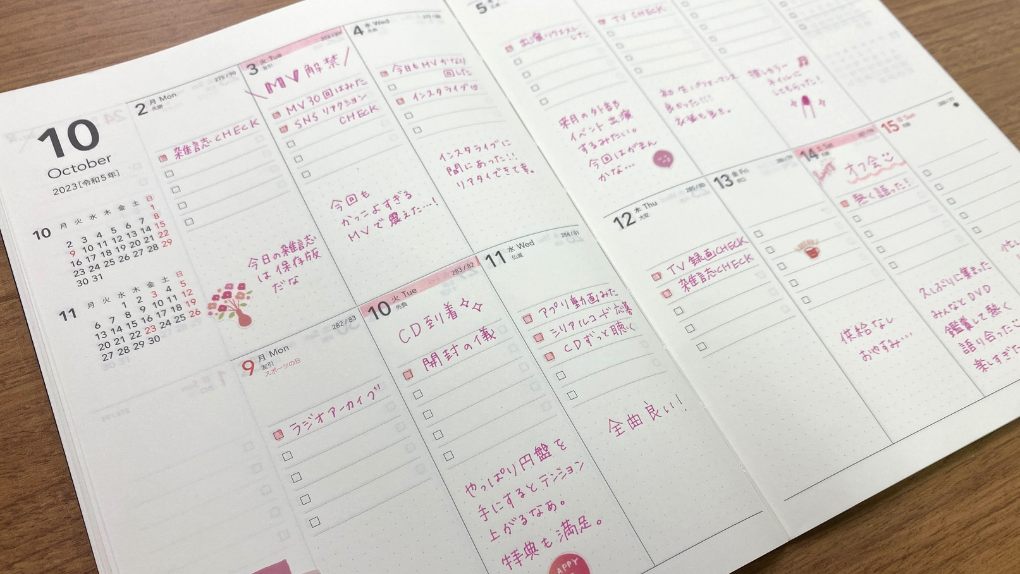 10
October
2023[令和5年]
10
月 火 水 木 金 土 日
1
2 3 4 5 6 7 8
9 10 11 12 13 14 15
16 17 18 19 20 21 22
23 24 25 26 27 28 29
30 31
11
月 火 水 木 金 土 日
1 2 3 4 5
6 7 8 9 10 11 12
13 14 15 16 17 18 19
20 21 22 23 24 25 26
27 28 29 30
2 月 Mon
275/90
雑誌CHECK
今日の雑誌
は保存版
だな
3 火 Tue
友引
MV解禁
MV30回はみた
SNSリアクション
CHECK
今回も
かっこよすぎる
MVで震えた…!
4 水 Wed
今日もMVかなり
回した
インスタライブ
インスタライブに
間にあった!!
リアタイできて幸。
5
出演リクエスト
した
来月の外部
イベント出演
するみたい。
今回はがまん
かな…
TV CHECK
良かった!!!
推しカラー
ネイルに
してもらった!
9 月 Mon
282/83
友引
スポーツの日
ラジオアーカイブ
10 火 Tue
283/82
先負
CD到着
開封の儀
やっぱり円盤を
手にするとテンション
上がるなあ。
特典も満足。
APPY
11 水 Wed
284/81
仏滅
アプリ動画みた
シリアルコード応募
CDずっと聴く
全曲良い!
12 木 Thu
285/80
大安
TV録画CHECK
雑誌CHECK
13 金 Fri
供給なし
おやすみ…
14 土 Sat
オフ会
熱く語った!
久しぶりに集まった
みんなとDVD
鑑賞して熱く
語り合った
楽しすぎた
15 日 Sun